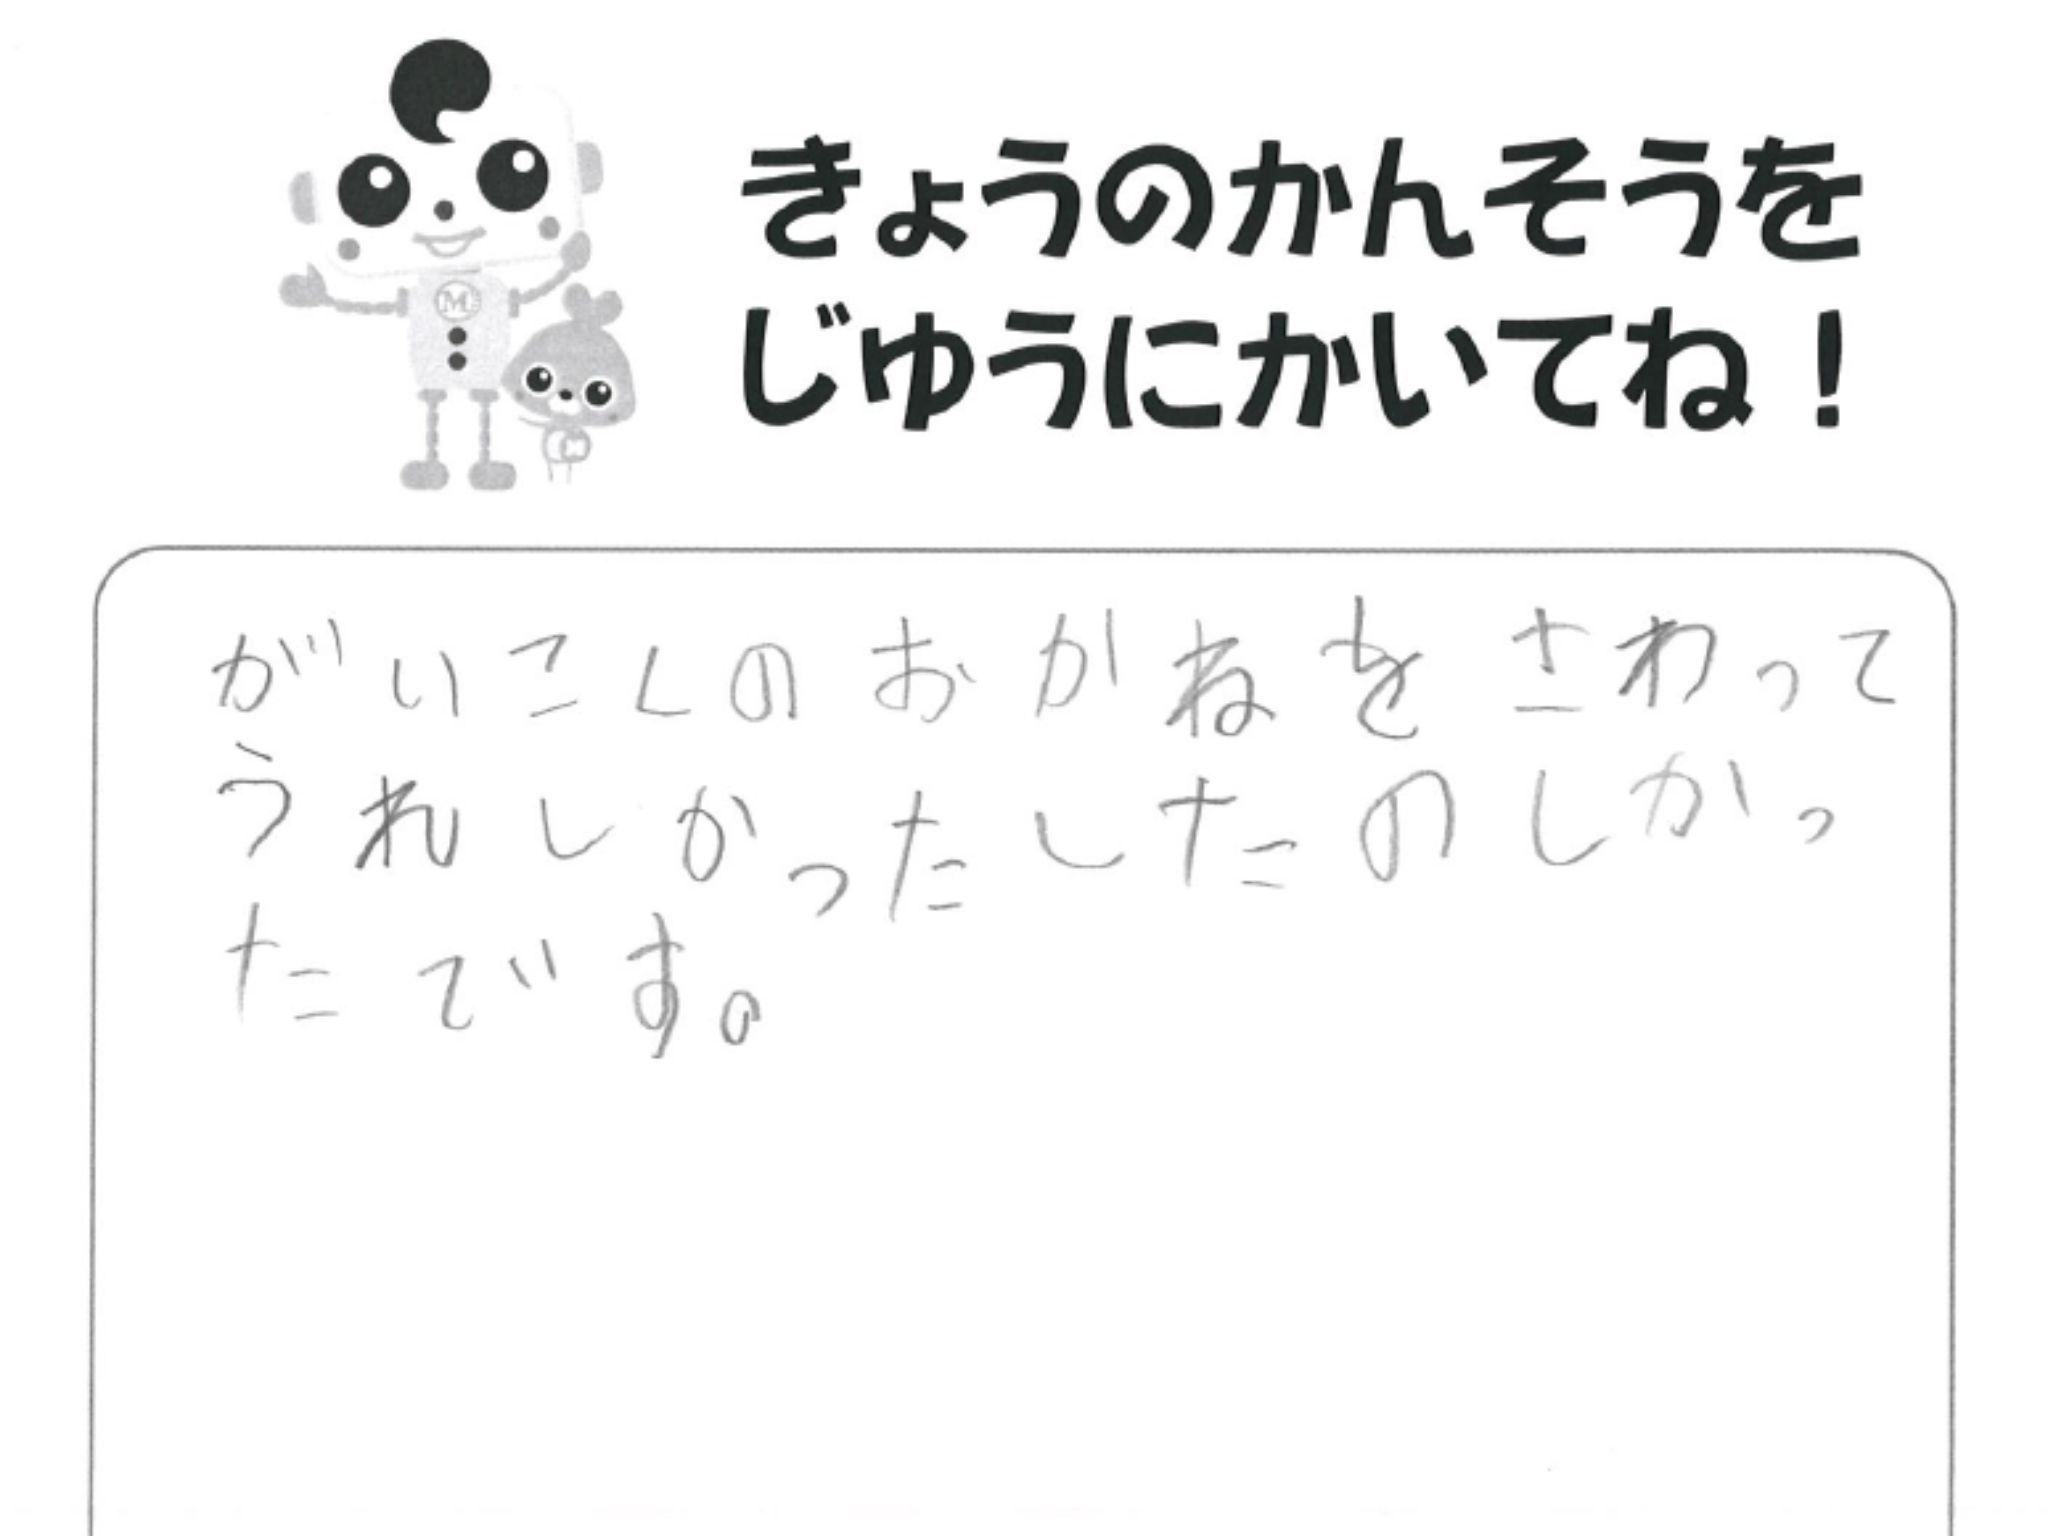 きょうのかんそうを
じゆうにかいてね！
M
がいこくのおかねをさわって
うれしかったしたのしかっ
たです。